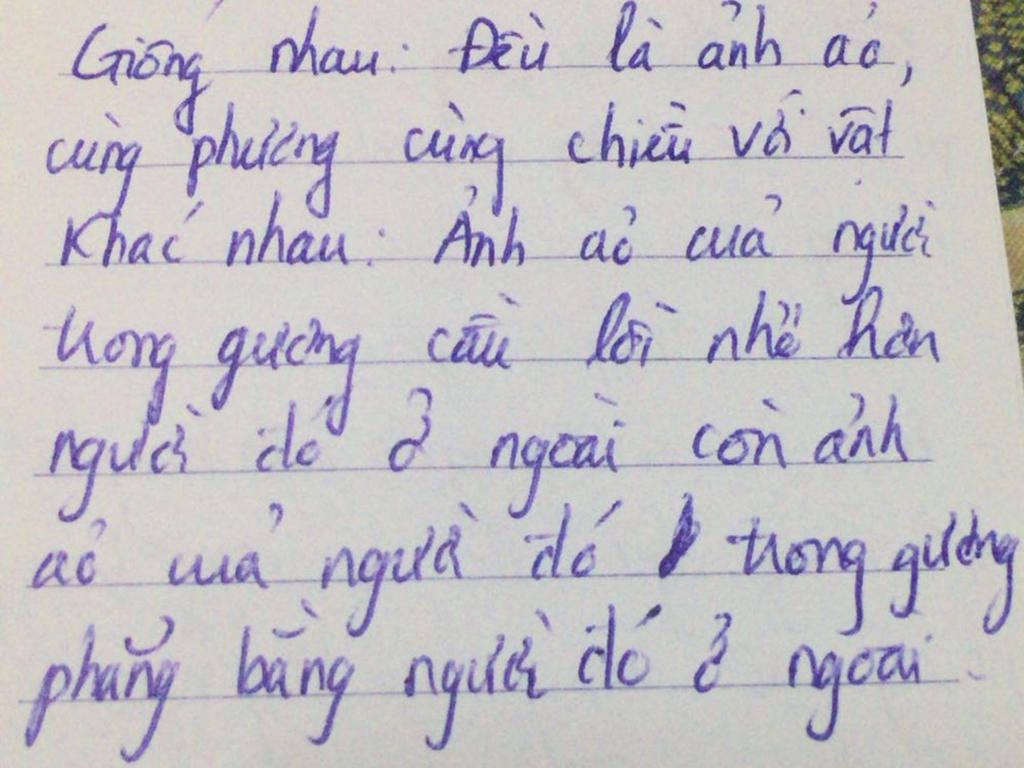 Giống nhau: Đều là ảnh ảo,
cùng phương cùng chiều với vật
Khác nhau: Ảnh ảo của người
trong gương cầu lồi nhỏ hơn
người đó ở ngoài còn ảnh
ảo của người đó trong gương
phẳng bằng người đó ở ngoài.